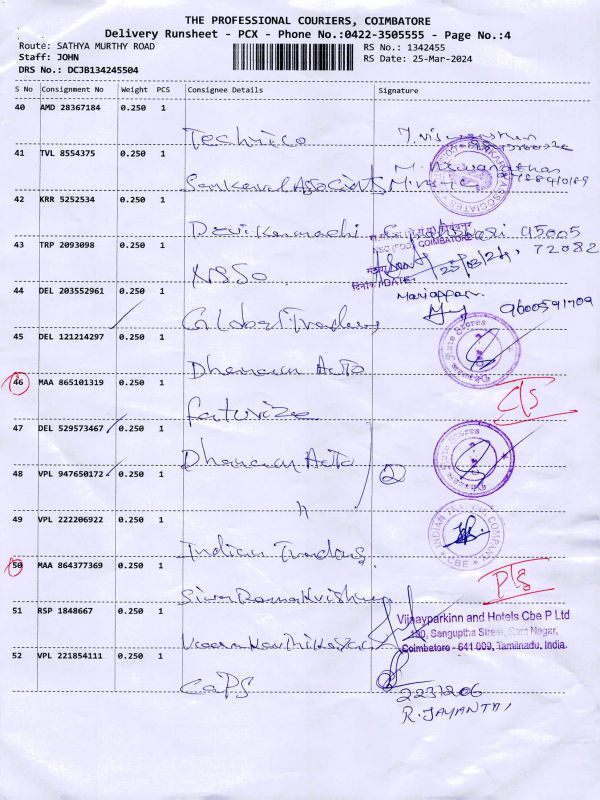 THE PROFESSIONAL COURIERS, COIMBATORE
Delivery Runsheet - PCX - Phone No.:0422-3505555 - Page No.:4
Route: SATHYA MURTHY ROAD RS No.: 1342455
Staff: JOHN RS Date: 25-Mar-2024
DRS No.: DCJB134245504
S No Consignment No Weight PCS Consignee Details Signature
40 AMD 28367184 0.250 1
Technico
41 TVL 8554375 0.250 1
42 KRR 5252534 0.250 1
95005
43 TRP 2093098 0.250 1
COIMBATORE 72082
NSSO
DATE
44 DEL 203552961 0.250 1
Mariappan
Global Traders 9600591709
45 DEL 121214297 0.250 1
Auto
46 MAA 865101319 0.250 1
C/S
47 DEL 529573467 0.250 1
Auto
48 VPL 947650172 0.250 1 2
"
49 VPL 222206922 0.250 1
INDIAN TRADING COMPANY CBE
Indian Traders
50 MAA 864377369 0.250 1
D/S
Siva Rama Krishna
51 RSP 1848667 0.250 1
Vijayparkinn and Hotels Cbe P Ltd
100, Sanguptha Street, Ram Nagar,
Coimbatore - 641 009, Tamilnadu, India.
52 VPL 221854111 0.250 1
CAPS
2231206
R. JAYANTHI